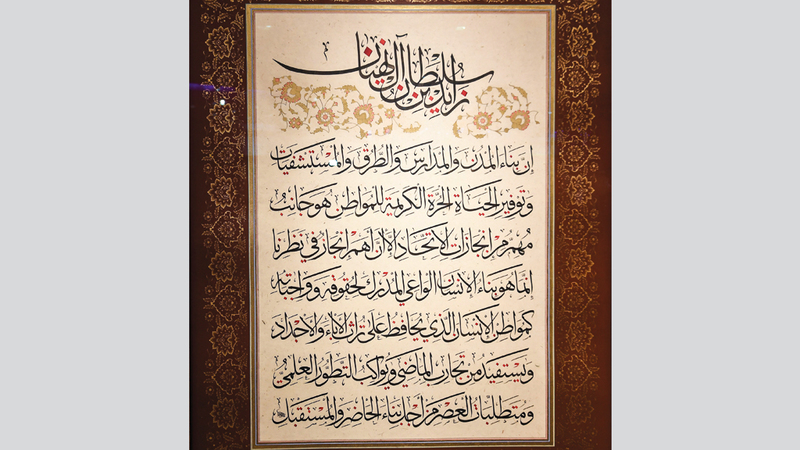 زايد بن سلطان آل نهيان
إن بناء المدن والمدارس والطرق والمستشفيات
وتوفير الحياة الحرة الكريمة للمواطن هو جانب
مهم من إنجازات الاتحاد إلا أن أهم إنجاز في نظرنا
إنما هو بناء الإنسان الواعي المدرك لحقوقه وواجباته
كمواطن الإنسان الذي يحافظ على تراث الآباء والأجداد
ويستفيد من تجارب الماضي ويواكب التطور العلمي
ومتطلبات العصر من أجل بناء الحاضر والمستقبل